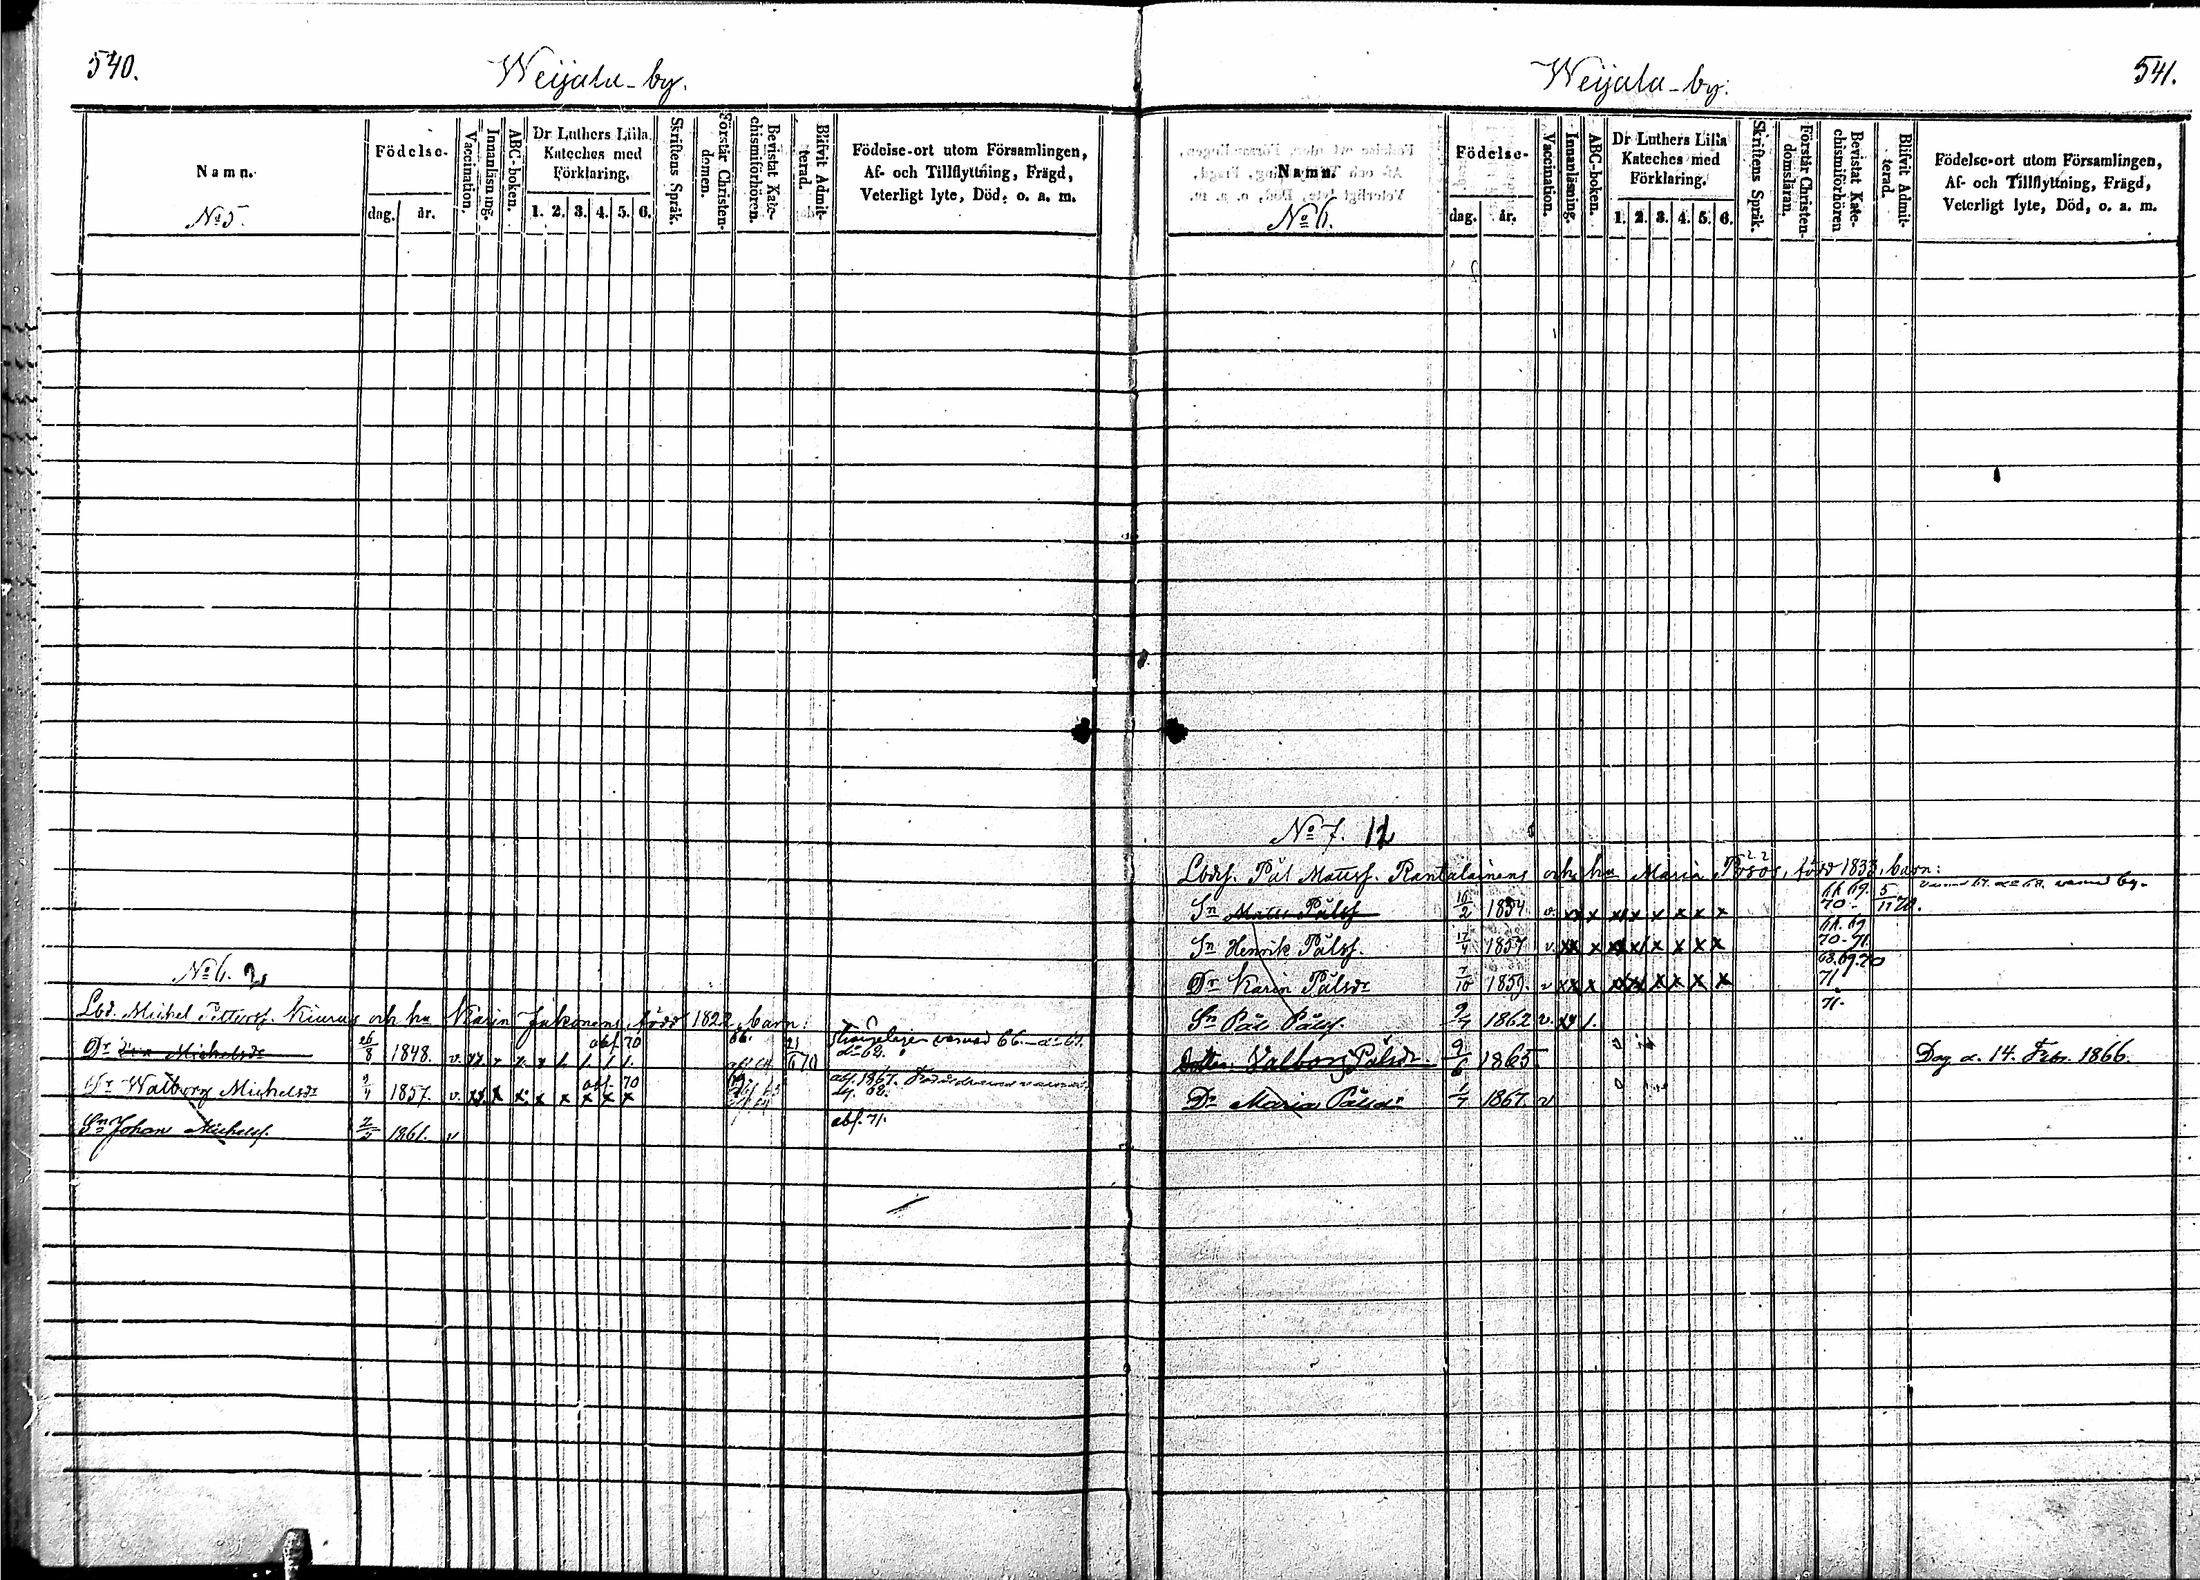 540.
Weijala-by.
Namn.
No 5.
Födelse.
dag.
år.
Vaccination.
Innanläsning.
ABC-boken.
Dr Luthers Lilla
Kateches med
Förklaring.
1. 2. 3. 4. 5. 6.
Skriftens Språk.
Förstår Christen-
domen.
Bevistat Kate-
chismiförhören.
Blifvit Admit-
terad.
Födelse-ort utom Församlingen,
Af- och Tillflyttning, Frägd,
Veterligt lyte, Död, o. a. m.
No 6. 2
Lbd. Michel Pettersf. Kiurus och hu Karin Jakonens, född 1822, barn:
Dr Michelsdr 26/8 1848. v. abs. 70 66. 21/6 70
do 68.
Dr Walborg Michelsdr 9/4 1857. v. xx x x x x x x x abs. 70
Sn Johan Michelsf. 2/5 1861. v abs. 71.
541.
Weijala-by.
Namn.
No 6.
Födelse-
dag.
år.
Vaccination.
Innanläsning.
ABC-boken.
Dr Luthers Lilla
Kateches med
Förklaring.
1. 2. 3. 4. 5. 6.
Skriftens Språk.
Förstår Christen-
domsläran.
Bevistat Kate-
chismiförhören
Blifvit Admit-
terad.
Födelse-ort utom Församlingen,
Af- och Tillflyttning, Frägd,
Veterligt lyte, Död, o. a. m.
No 7. 12
Lbdsf. Pål Mattsf. Rantalainens och hu Maria Pösös, född 1833, barn:
Sn Matts Pålsf 16/2 1854 v. xx x xx x x x x x 70. 5/11 70.
Sn Henrik Pålsf. 17/4 1857 v. xx x xx xx x x x x 70-71
Dr Karin Pålsdr 7/10 1859. v xx x xx xx x x x x 68.69.70 71
Sn Pål Pålsf. 9/7 1862 v. xx 1. 71.
Dotter Valborg Pålsdr. 9/6 1865 Dog d. 14. Febr. 1866.
Dr Maria Pålsdr 1/7 1867. v